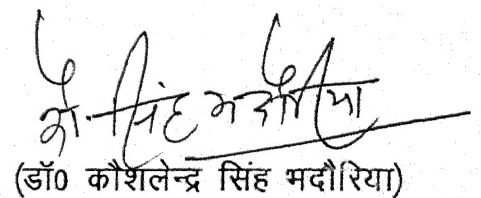 कौ. सिंह भदौरिया
(डॉ0 कौशलेन्द्र सिंह भदौरिया)